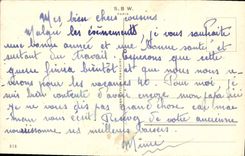 S.B.W.
Mes bien chers cousins.
Malgré les évènements je vous souhaite
une bonne année et une bonne santé, et
surtout du travail. Espérons que cette
guerre finira bientôt et que nous nous re
verrons pour les vacances. Moi, je
suis bien contente d'avoir encore mon papa
je ne vous dis pas grand chose car
vous écrit Recevez de votre ancienne
ses meilleurs baisers.